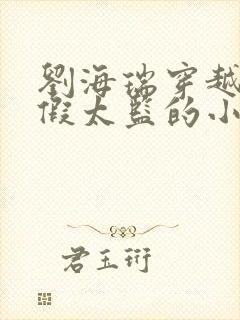 劉海瑞穿越
假太監的小
君玉珩